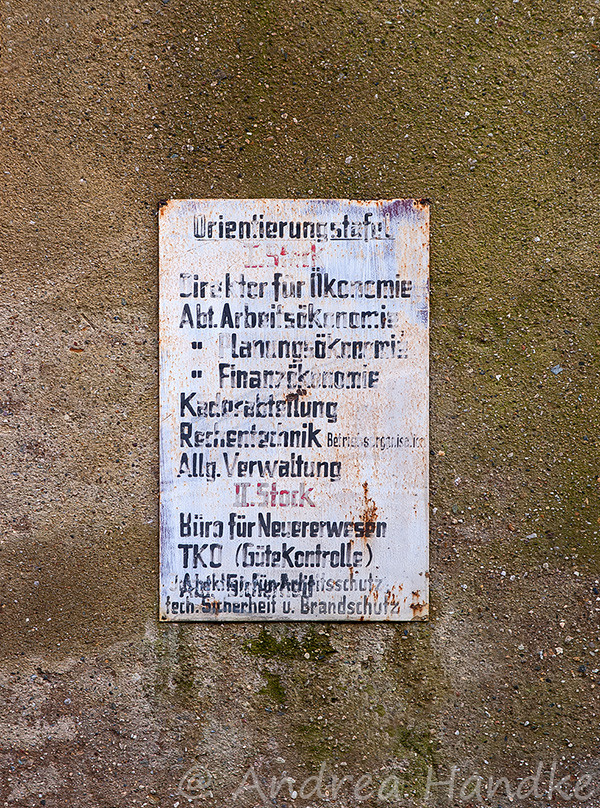 Orientierungstafel
I. Stock
Direktor für Ökonomie
Abt. Arbeitsökonomie
" Planungsökonomie
" Finanzökonomie
Kaderabteilung
Rechentechnik Betriebsorganisation
Allg. Verwaltung
II. Stock
Büro für Neuererwesen
TKO (Gütekontrolle)
für Arbeitsschutz
tech. Sicherheit u. Brandschutz
© Andrea Handke